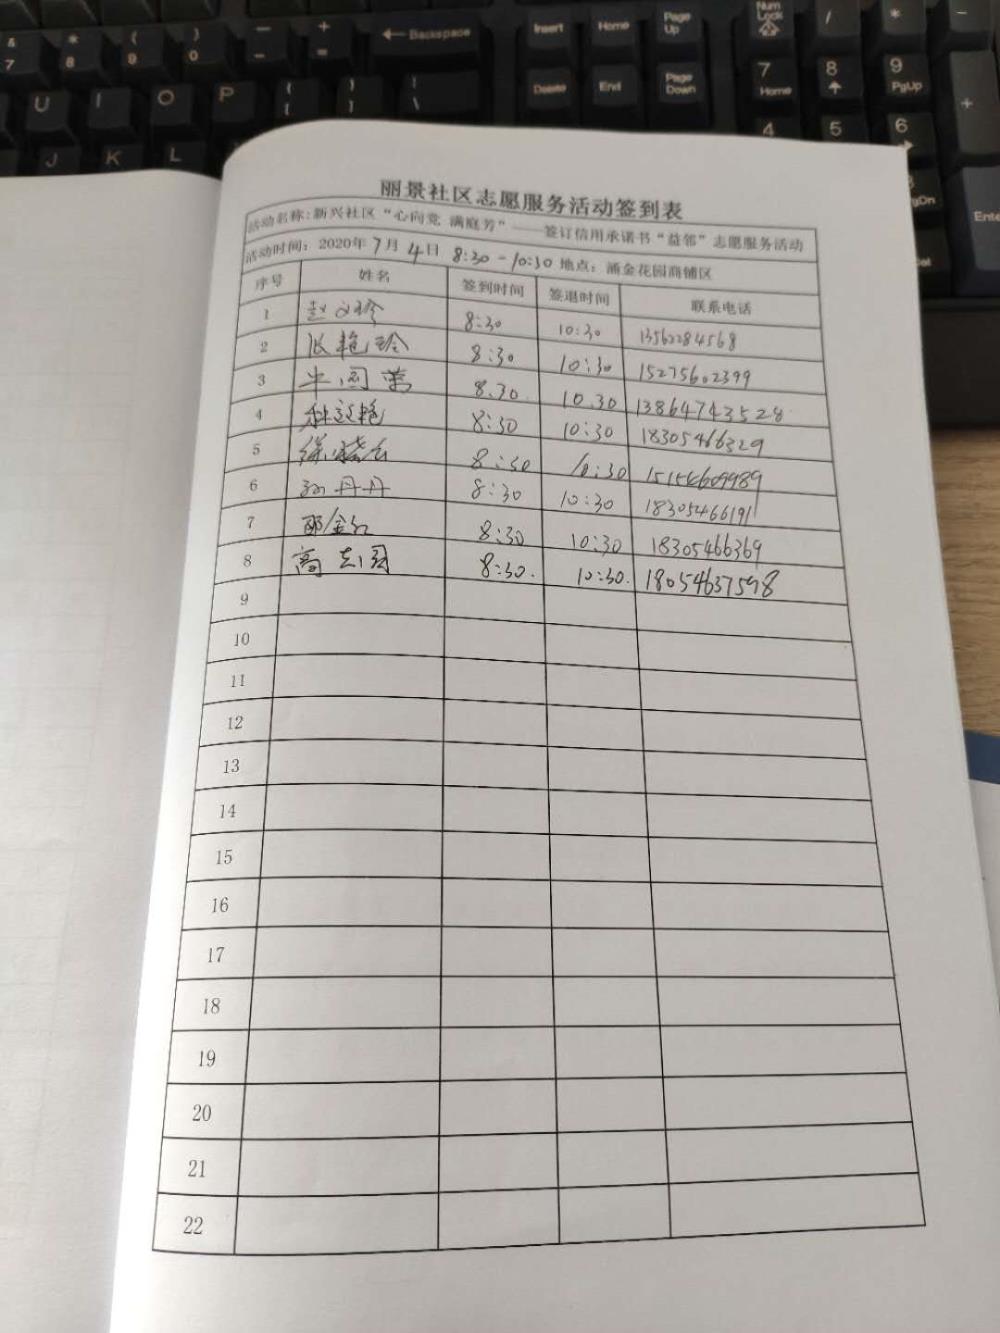 & * ( ) — +
7 8 9 0 - = ←Backspace Insert Home Page Up Num Lock / * −
U I O P { [ } ] | \ Delete End Page Down 7 Home 8 9 PgUp +
J K L 4 5 6
gDn Ente
el
丽景社区志愿服务活动签到表
活动名称:新兴社区“心向党 满庭芳”——签订信用承诺书“益邻”志愿服务活动
活动时间: 2020年 7月 4日 8:30 - 10:30 地点: 涌金花园商铺区
序号 姓名 签到时间 签退时间 联系电话
1 赵 8:30 10:30 13562284568
2 张艳玲 8:30 10:30 15275602399
3 8.30 10.30 13864743528
4 8:30 10:30 18305466329
5 徐晓云 8:30 10:30 15154609989
6 孙丹丹 8:30 10:30 18305466191
7 8:30 10:30 18305466369
8 高志国 8:30. 10:30. 18054637598
9
10
11
12
13
14
15
16
17
18
19
20
21
22